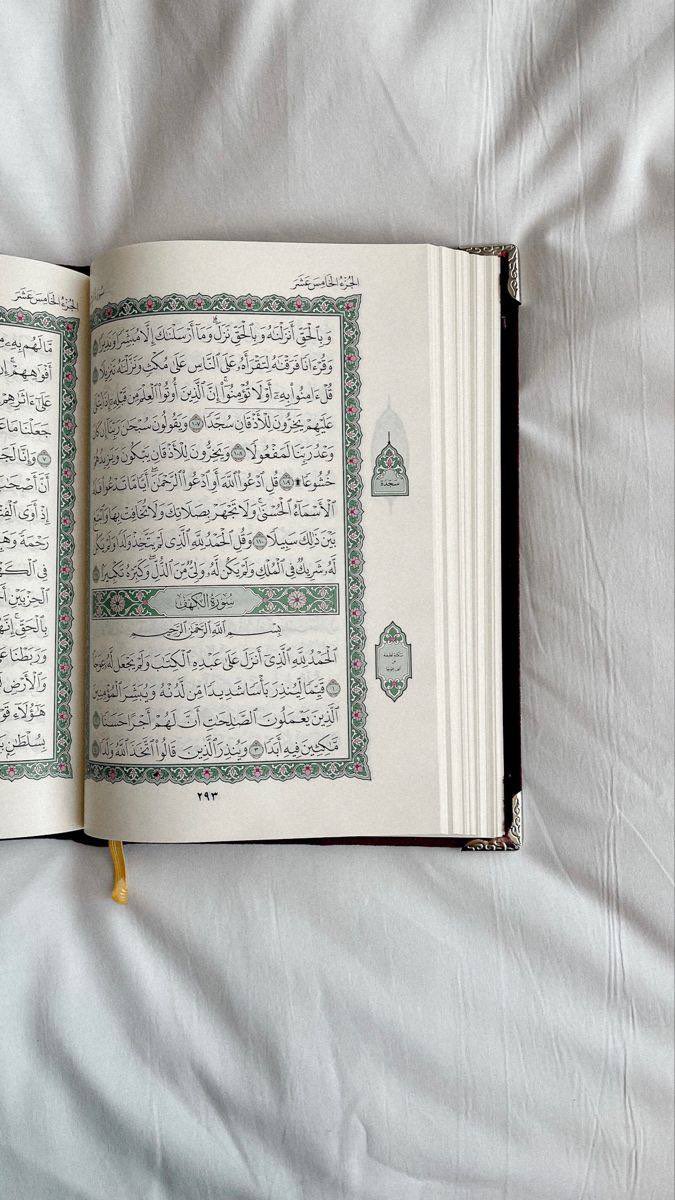 الجزء الخامس عشر
وَبِالْحَقِّ أَنزَلْنَٰهُ وَبِالْحَقِّ نَزَلَ ۗ وَمَا أَرْسَلْنَٰكَ إِلَّا مُبَشِّرًا وَنَذِيرًا
وَقُرْءَانًا فَرَقْنَٰهُ لِتَقْرَأَهُۥ عَلَى النَّاسِ عَلَىٰ مُكْثٍ وَنَزَّلْنَٰهُ تَنزِيلًا
قُلْ ءَامِنُوا۟ بِهِۦٓ أَوْ لَا تُؤْمِنُوٓا۟ ۚ إِنَّ الَّذِينَ أُوتُوا۟ الْعِلْمَ مِن قَبْلِهِۦٓ إِذَا يُتْلَىٰ
عَلَيْهِمْ يَخِرُّونَ لِلْأَذْقَانِ سُجَّدًا ١٠٧ وَيَقُولُونَ سُبْحَٰنَ رَبِّنَآ إِن كَانَ
وَعْدُ رَبِّنَا لَمَفْعُولًا ١٠٨ وَيَخِرُّونَ لِلْأَذْقَانِ يَبْكُونَ وَيَزِيدُهُمْ
خُشُوعًا ۩ ١٠٩ قُلِ ادْعُوا۟ اللَّهَ أَوِ ادْعُوا۟ الرَّحْمَٰنَ ۖ أَيًّا مَّا تَدْعُوا۟ فَلَهُ
الْأَسْمَآءُ الْحُسْنَىٰ ۚ وَلَا تَجْهَرْ بِصَلَاتِكَ وَلَا تُخَافِتْ بِهَا وَابْتَغِ
بَيْنَ ذَٰلِكَ سَبِيلًا ١١٠ وَقُلِ الْحَمْدُ لِلَّهِ الَّذِى لَمْ يَتَّخِذْ وَلَدًا وَلَمْ يَكُن
لَّهُۥ شَرِيكٌ فِى الْمُلْكِ وَلَمْ يَكُن لَّهُۥ وَلِىٌّ مِّنَ الذُّلِّ ۖ وَكَبِّرْهُ تَكْبِيرًۢا
سُورَةُ الْكَهْفِ
بِسْمِ اللَّهِ الرَّحْمَٰنِ الرَّحِيمِ
الْحَمْدُ لِلَّهِ الَّذِىٓ أَنزَلَ عَلَىٰ عَبْدِهِ الْكِتَٰبَ وَلَمْ يَجْعَل لَّهُۥ عِوَجَا
١ قَيِّمًا لِّيُنذِرَ بَأْسًا شَدِيدًا مِّن لَّدُنْهُ وَيُبَشِّرَ الْمُؤْمِنِينَ
الَّذِينَ يَعْمَلُونَ الصَّٰلِحَٰتِ أَنَّ لَهُمْ أَجْرًا حَسَنًا
مَّٰكِثِينَ فِيهِ أَبَدًا ٣ وَيُنذِرَ الَّذِينَ قَالُوا۟ اتَّخَذَ اللَّهُ وَلَدًا
٢٩٣
سجدة
الجزء الخامس عشر
مَّا لَهُم بِهِۦ
أَفْوَٰهِهِمْ ۚ
عَلَىٰٓ ءَاثَٰرِهِمْ
جَعَلْنَا مَا
وَإِنَّا
أَنَّ أَصْحَٰبَ
إِذْ أَوَى
رَحْمَةً
فِى
الْحِزْبَيْنِ
بِالْحَقِّ ۚ
وَرَبَطْنَا
وَالْأَرْضِ
هَٰٓؤُلَآءِ
بِسُلْطَٰنٍۭ